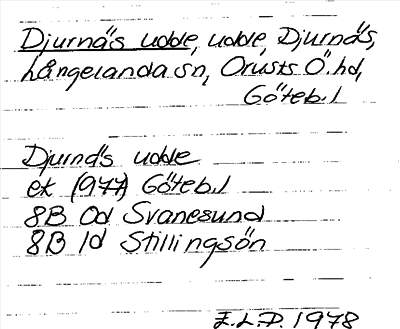 Djurnäs udde, udde, Djurnäs,
Långelanda sn, Orusts Ö. hd,
Göteb. l
Djurnäs udde
ek (1977) Göteb. l
8B 0d Svanesund
8B 1d Stillingsön
E.L.P. 1978